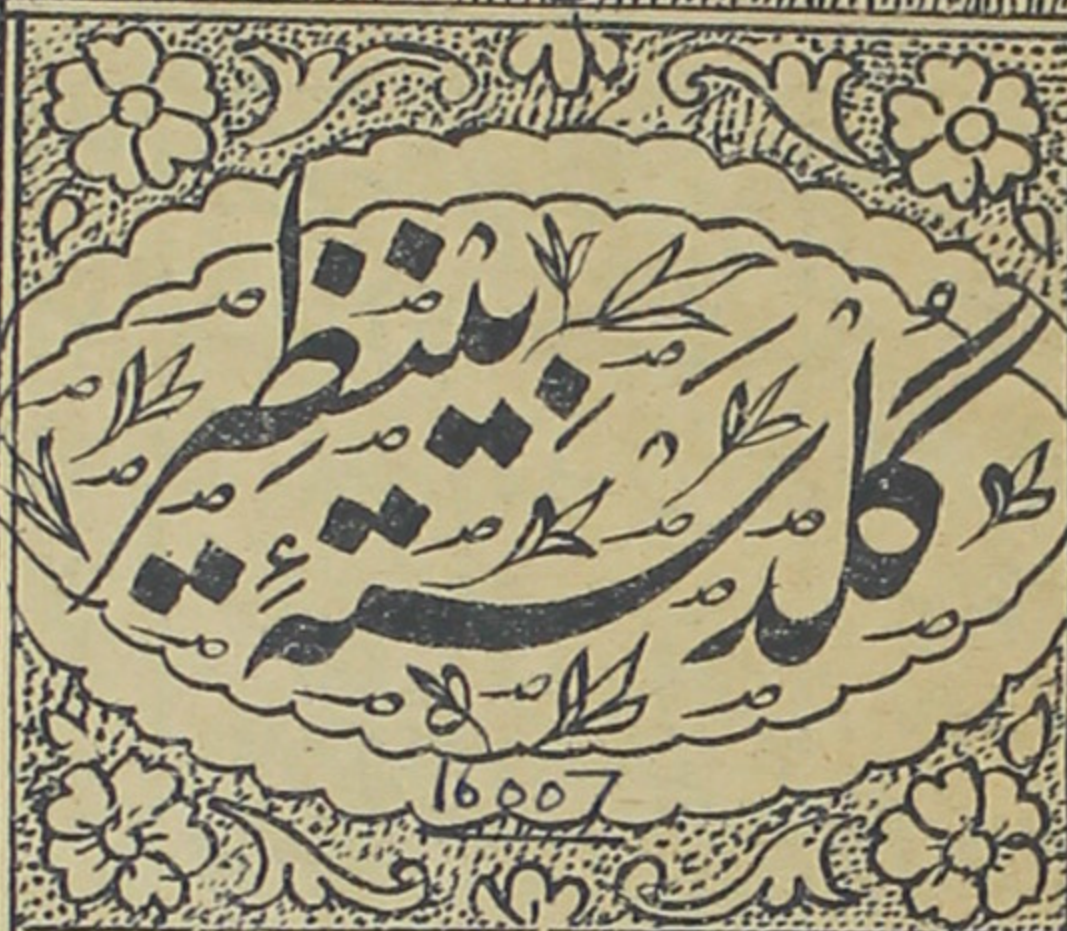 گلدستۂ
بینظیر
16007